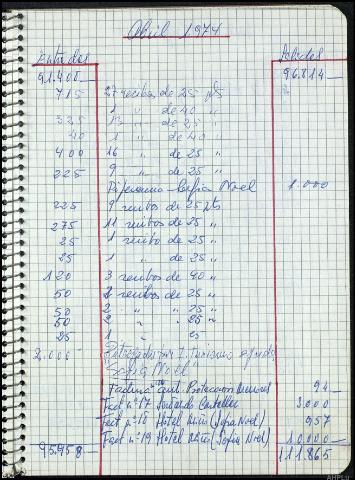 Abril 1974
Entradas Salidas
91.400 96.814
715 27 recibos de 25 pts
1 " de 40 "
325 13 " de 25 "
40 1 " de 40 "
400 16 " de 25 "
225 9 " de 25 "
Noel 1.000
225 9 recibos de 25 pts
275 11 recibos de 25 "
25 1 recibo de 25 "
25 1 " de 25 "
120 3 recibos de 40 "
50 2 recibos de 25 "
50 2 " " 25 "
50 2 " " 25 "
25 1 " 25
2.000
Sofia Noel
Factura Proteccion Menores 94
Fact nº 17 3.000
Fact nº 18 Hotel Miño (Sofia Noel) 957
Fact nº 19 Hotel Miño (Sofia Noel) 10.000
95.958 111.865
AHPLu